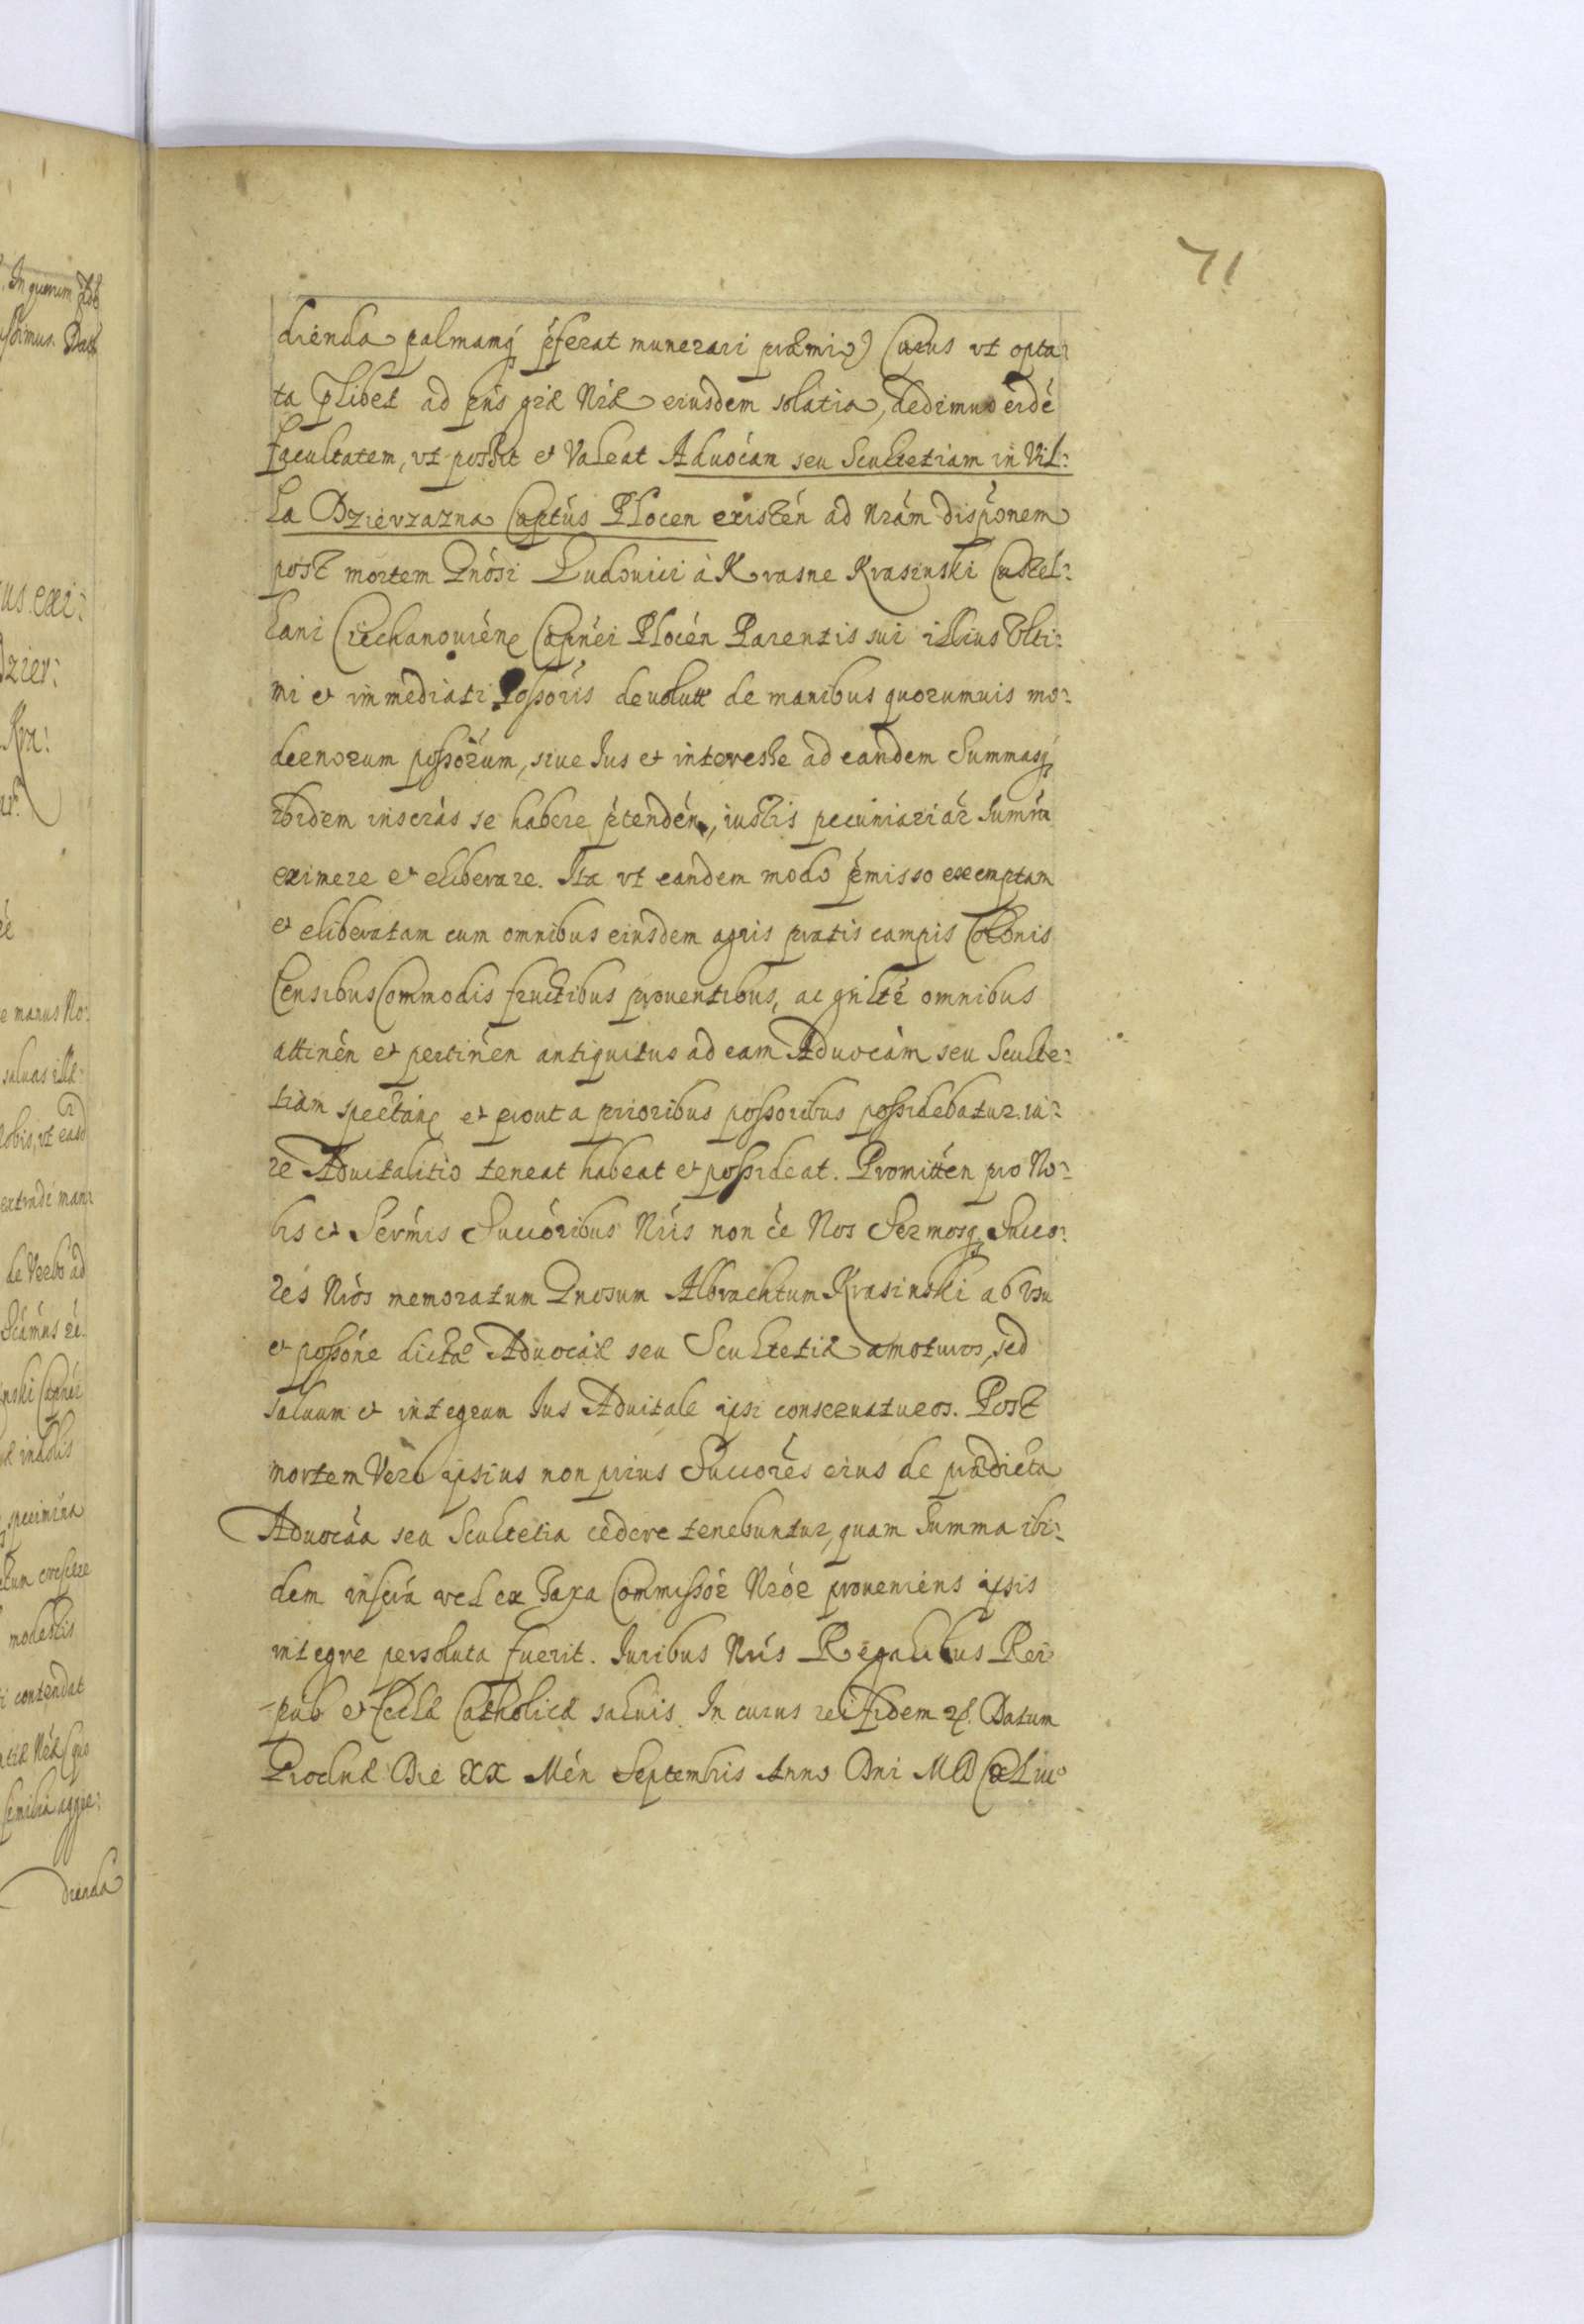 71
dienda palmamq́ ṕferat munerari præmio) Cuius vt opta:
ta Plibet ad pńs grã Nrã eiusdem solatia, dedimus eidé
facultatem, vt possit et Valeat Aduocán seu Scultetiam in Vil:
la Dzievzazna Captús Plocen existén ad Nrám dispónem
post mortem Gnósi Ludouici à Krasne Krasinski Castel:
lani Ciechanouién Capnéi Plocén Parentis sui illius Vlti:
mi et immediati Possoris deuolutt de manibus quorumuis mo:
dernorum possórum, siue Jus et interesse ad eandem Summasq́
ibidem inscrás se habere ṕtendén, iustis pecuniariár Summ
eximere et eliberare. Ita vt eandem modo ṕmisso exemptam
et eliberatam cum omnibus eiusdem agris pratis campis Colonis
Censibus Commodis fructibus prouentibus, ac gńlté omnibus
attinén et pertinén antiquitus ad eam Aduocám seu Sculte:
tiam spectán et prout a prioribus possoribus possidebatur iu:
re Aduitalitio teneat habeat et possideat. Promittén pro No:
bis et Sermís Succóribus Nrís non ée Nos Sermosq́ Succo:
rés Nrós memoratum Gnosum Albrachtum Krasinski ab vsu
et possóne dictæ Aduocáæ seu Scultetiæ amoturos, sed
saluum et integrum Jus Aduitale ipsi conseruaturos. Post
mortem Vero ipsius non prius Succorés eius de prædicta
Aduocáa seu Scultetia cedere tenebuntur, quam Summa ibi:
dem inscrá vel ex Taxa Commissór Nrór proueniens ipsis
integre persoluta fuerit. Juribus Nrís Regalibus Rei
pub et Ecclæ Catholicæ saluis. In cuius rei fidem &. Datum
Die XX Mén Septembris Anno Dni